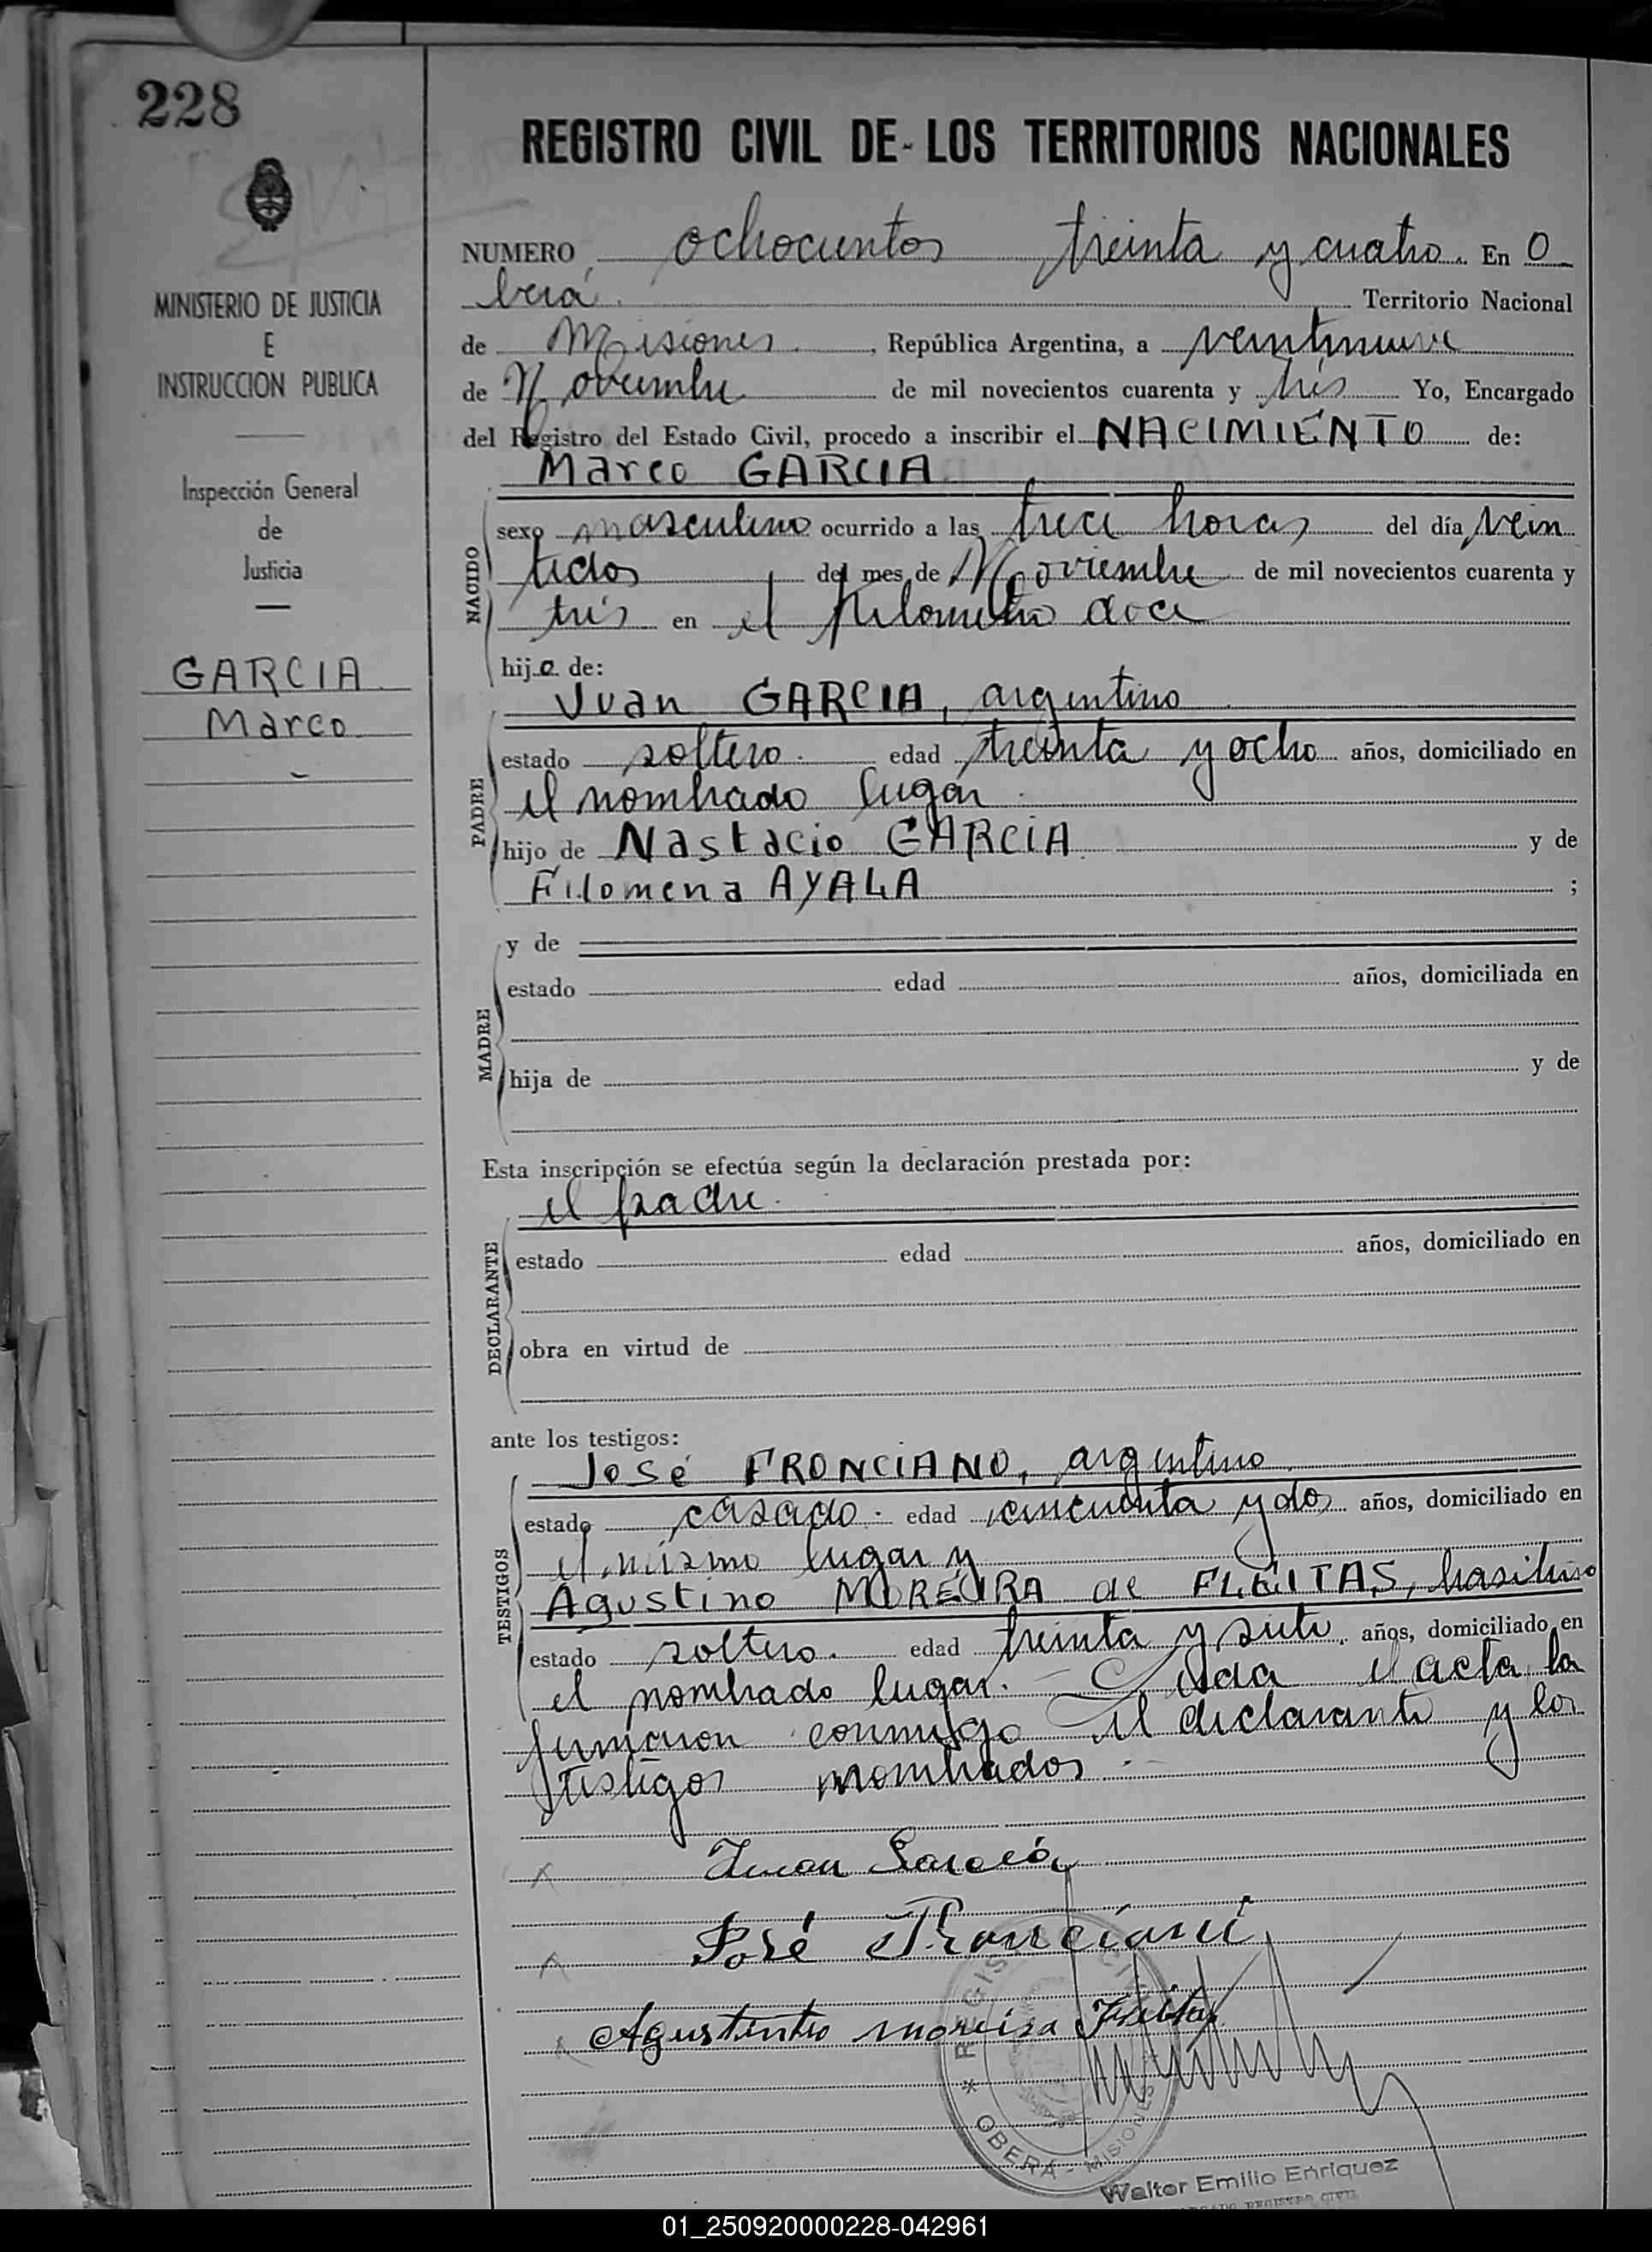 228
REGISTRO CIVIL DE LOS TERRITORIOS NACIONALES
MINISTERIO DE JUSTICIA
E
INSTRUCCION PUBLICA
Inspección General
de
Justicia
GARCIA
Marco
NUMERO ochocientos treinta y cuatro. En O
berá. Territorio Nacional
de Misiones. República Argentina, a veintinueve
de Noviembre de mil novecientos cuarenta y trés Yo, Encargado
del Registro del Estado Civil, procedo a inscribir el NACIMIENTO de:
Marco GARCIA
NACIDO
sexo masculino ocurrido a las trece horas del día vein
tidos del mes de Noviembre de mil novecientos cuarenta y
trés en el kilometro doce
hijo de:
Juan GARCIA, argentino
PADRE
estado soltero. edad treinta y ocho años, domiciliado en
el nombrado lugar.
hijo de Nastacio GARCIA y de
Filomena AYALA ;
y de
MADRE
estado edad años, domiciliada en
hija de y de
Esta inscripción se efectúa según la declaración prestada por:
el padre.
DECLARANTE
estado edad años, domiciliado en
obra en virtud de
ante los testigos:
José FRONCIANO, argentino
TESTIGOS
estado casado. edad cincuenta y dos años, domiciliado en
el mismo lugar y
Agustino MOREIRA de FLEITAS, brasilero
estado soltero. edad treinta y siete. años, domiciliado en
el nombrado lugar. Leida el acta la
firmaron conmigo el declarante y los
testigos nombrados.
Juan García
José
moreira
REGISTRO CIVIL
* OBERÁ - MISIONES
Walter Emilio Enriquez
REGISTRO CIVIL
01_250920000228-042961